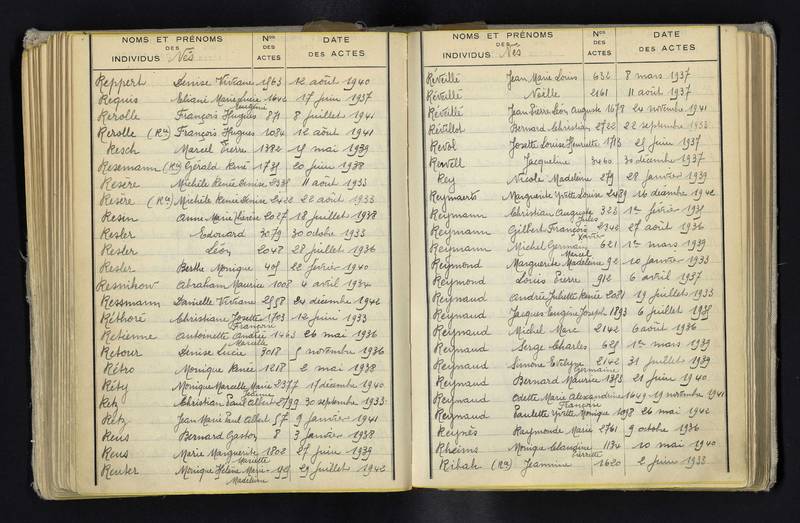 NOMS ET PRÉNOMS
DES
INDIVIDUS Nés
Nos
DES
ACTES
DATE
DES ACTES
Reppert Denise Viviane 1563 12 août 1940
Requis Eliane Marie Lucie 1642 17 juin 1937
Eugénie
Rerolle François Hugues 871 8 juillet 1941
Rerolle (Ron) François Hugues 1084 12 août 1941
Resch Marcel Pierre 1380 15 mai 1939
Resemann (Ron) Gérald René 1735 20 juin 1938
Resère Michèle Renée Denise 2338 11 août 1933
Resère (Ron) Michèle Renée Denise 2422 22 août 1933
Resin Anne Marie Thérèse 2027 18 juillet 1938
Resler Edouard 3079 30 octobre 1933
Resler Léon 2048 28 juillet 1936
Resler Berthe Monique 405 22 février 1940
Resnikow Abraham Maurice 1008 4 avril 1934
Ressmann Danielle Viviane 2558 24 décembre 1942
Réthoré Christiane Josette 1703 12 juin 1933
Françoise
Retienne Antoinette Andrée 1463 26 mai 1936
Marcelle
Retour Denise Lucie 3018 5 novembre 1936
Rétro Monique Renée 1218 2 mai 1938
Réty Monique Marcelle Marie 2377 17 décembre 1940
Retz Christian Paul Albert 2799 30 septembre 1933
Retz Jean Marie Paul Albert 57 9 janvier 1941
Reus Bernard Gaston 8 3 janvier 1938
Reus Marie Marguerite 1802 27 juin 1939
Mariette
Reuter Monique Hélène Marie 99 29 juillet 1942
Madeleine
NOMS ET PRÉNOMS
DES
INDIVIDUS Nés
Nos
DES
ACTES
DATE
DES ACTES
Réveillé Jean Marie Louis 632 8 mars 1937
Réveillé Noëlle 2161 11 août 1937
Réveillé Jean Pierre Léon Auguste 1678 24 novembre 1941
Révillot Bernard Christian 2722 22 septembre 1933
Revol Josette Louise Henriette 1713 25 juin 1937
Rewell Jacqueline 3460 30 décembre 1937
Rey Nicole Madeleine 279 28 janvier 1939
Reymaerts Marguerite Yvette Louise 2489 16 décembre 1942
Reymann Christian Auguste 323 1er février 1938
Jules
Reymann Gilbert François 2342 27 août 1936
Xavier
Reymann Michel Germain 621 1er mars 1939
Marcel
Reymond Marguerite Madeleine 92 10 janvier 1933
Reymond Louis Pierre 912 6 avril 1937
Reynaud Andrée Juliette Renée 2081 19 juillet 1933
Reynaud Jacques Eugène Joseph 1893 6 juillet 1938
Reynaud Michel Marc 2142 6 août 1936
Reynaud Serge Charles 625 1er mars 1939
Reynaud Simone Evelyne 2142 31 juillet 1939
Germaine
Reynaud Bernard Maurice 1313 21 juin 1940
Reynaud Odette Marie Alexandrine 1649 19 novembre 1941
Françoise
Reynaud Paulette Yvette Monique 1038 26 mai 1942
Reynès Raymonde Marie 2761 9 octobre 1936
Rheims Monique Claudine 1134 10 mai 1940
Pierrette
Ribak (Ron) Jeannine 1620 2 juin 1933